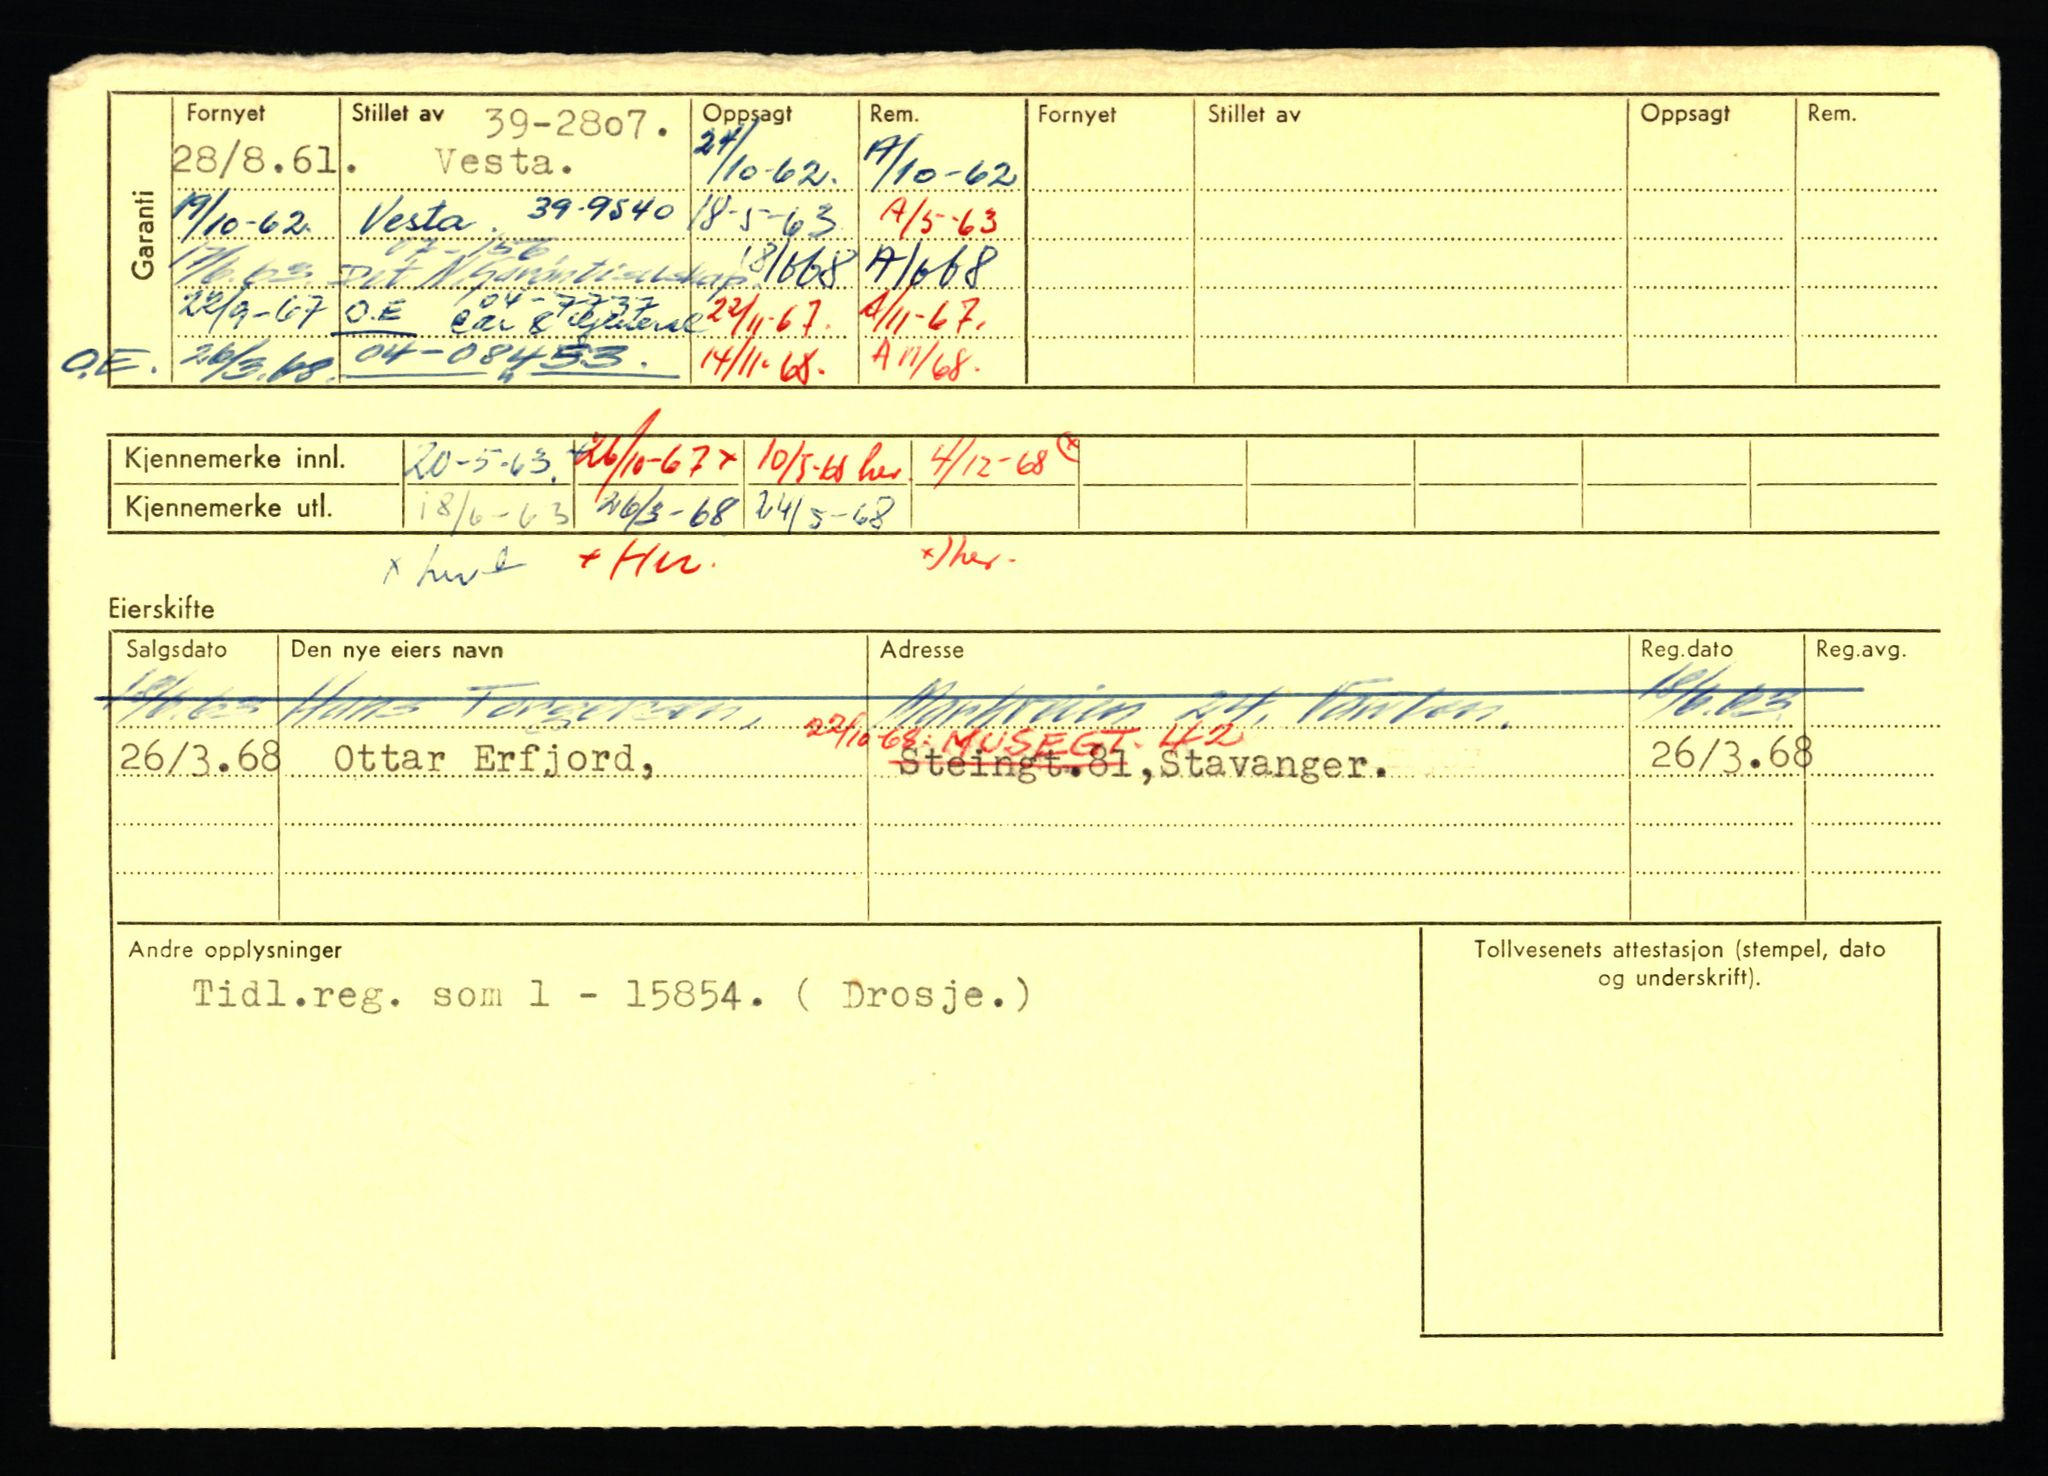 Garanti
Fornyet Stillet av 39-2807. Oppsagt Rem. Fornyet Stillet av Oppsagt Rem.
28/8.61. Vesta. 24/10-62. A/10-62
19/10-62. Vesta. 39-9540 18-5-63 A/5-63
07-156
17/6.63. Det N. Garantiselskap. 18/668 A/668
04-7737
22/9-67 O.E 22/11-67. A/11-67.
O.E. 26/3.68. 04-08453. 14/11-68. A 11/68.
Kjennemerke innl. 20-5-63. 26/10-67 x 10/5-68 her 4/12-68 (x
Kjennemerke utl. 18/6-63 26/3-68 24/5-68
x + Her. x) her.
Eierskifte
Salgsdato Den nye eiers navn Adresse Reg.dato Reg.avg.
18/6.63 Hans Torgersen, 24, 18/6.63.
22/10-68: MUSEGT. 42
26/3.68 Ottar Erfjord, Steingt.81, Stavanger. 26/3.68
Andre opplysninger
Tidl.reg. som l - 15854. ( Drosje.)
Tollvesenets attestasjon (stempel, dato
og underskrift).